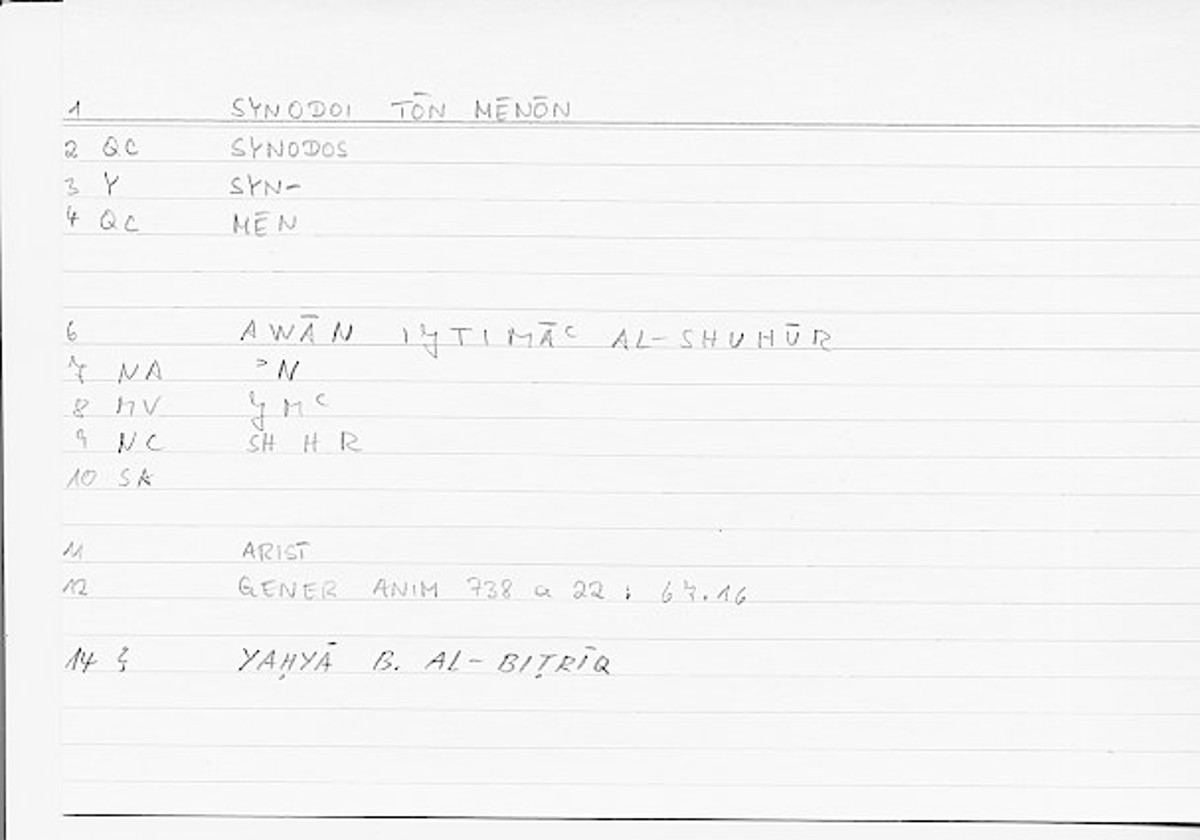 1 SYNODOI TŌN MĒNŌN
2 QC SYNODOS
3 Y SYN-
4 QC MĒN
6 AWĀN IǦTIMĀC AL-SHUHŪR
7 NA ᵓN
8 MV Ǧ M C
9 NC SH H R
10 SA
11 ARIST
12 GENER ANIM 738 a 22 ; 67.16
14 ξ YAḤYĀ B. AL-BIṬRĪQ